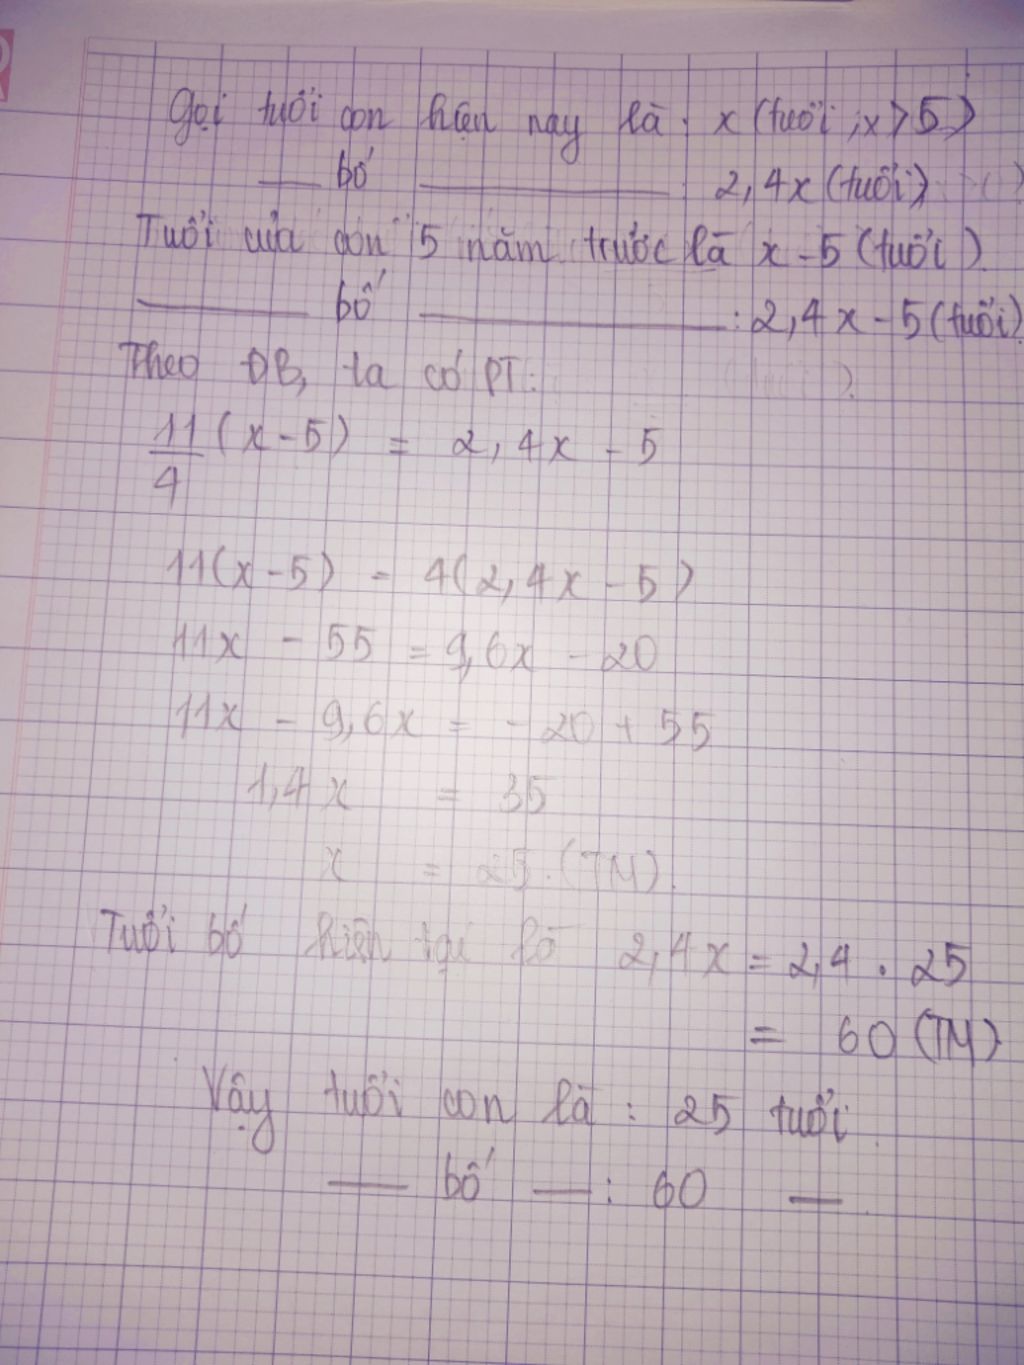 Gọi tuổi con hiện nay là : x (tuổi ; x > 5)
— bố ———— : 2,4x (tuổi)
Tuổi của con 5 năm trước là x - 5 (tuổi).
——— bố ———— : 2,4x - 5 (tuổi).
Theo ĐB, ta có PT:
11/4 (x - 5) = 2,4x - 5
11(x - 5) = 4(2,4x - 5)
11x - 55 = 9,6x - 20
11x - 9,6x = - 20 + 55
1,4x = 35
x = 25. (TM).
Tuổi bố hiện tại là 2,4x = 2,4 . 25
= 60 (TM).
Vậy tuổi con là : 25 tuổi.
— bố — : 60 —.